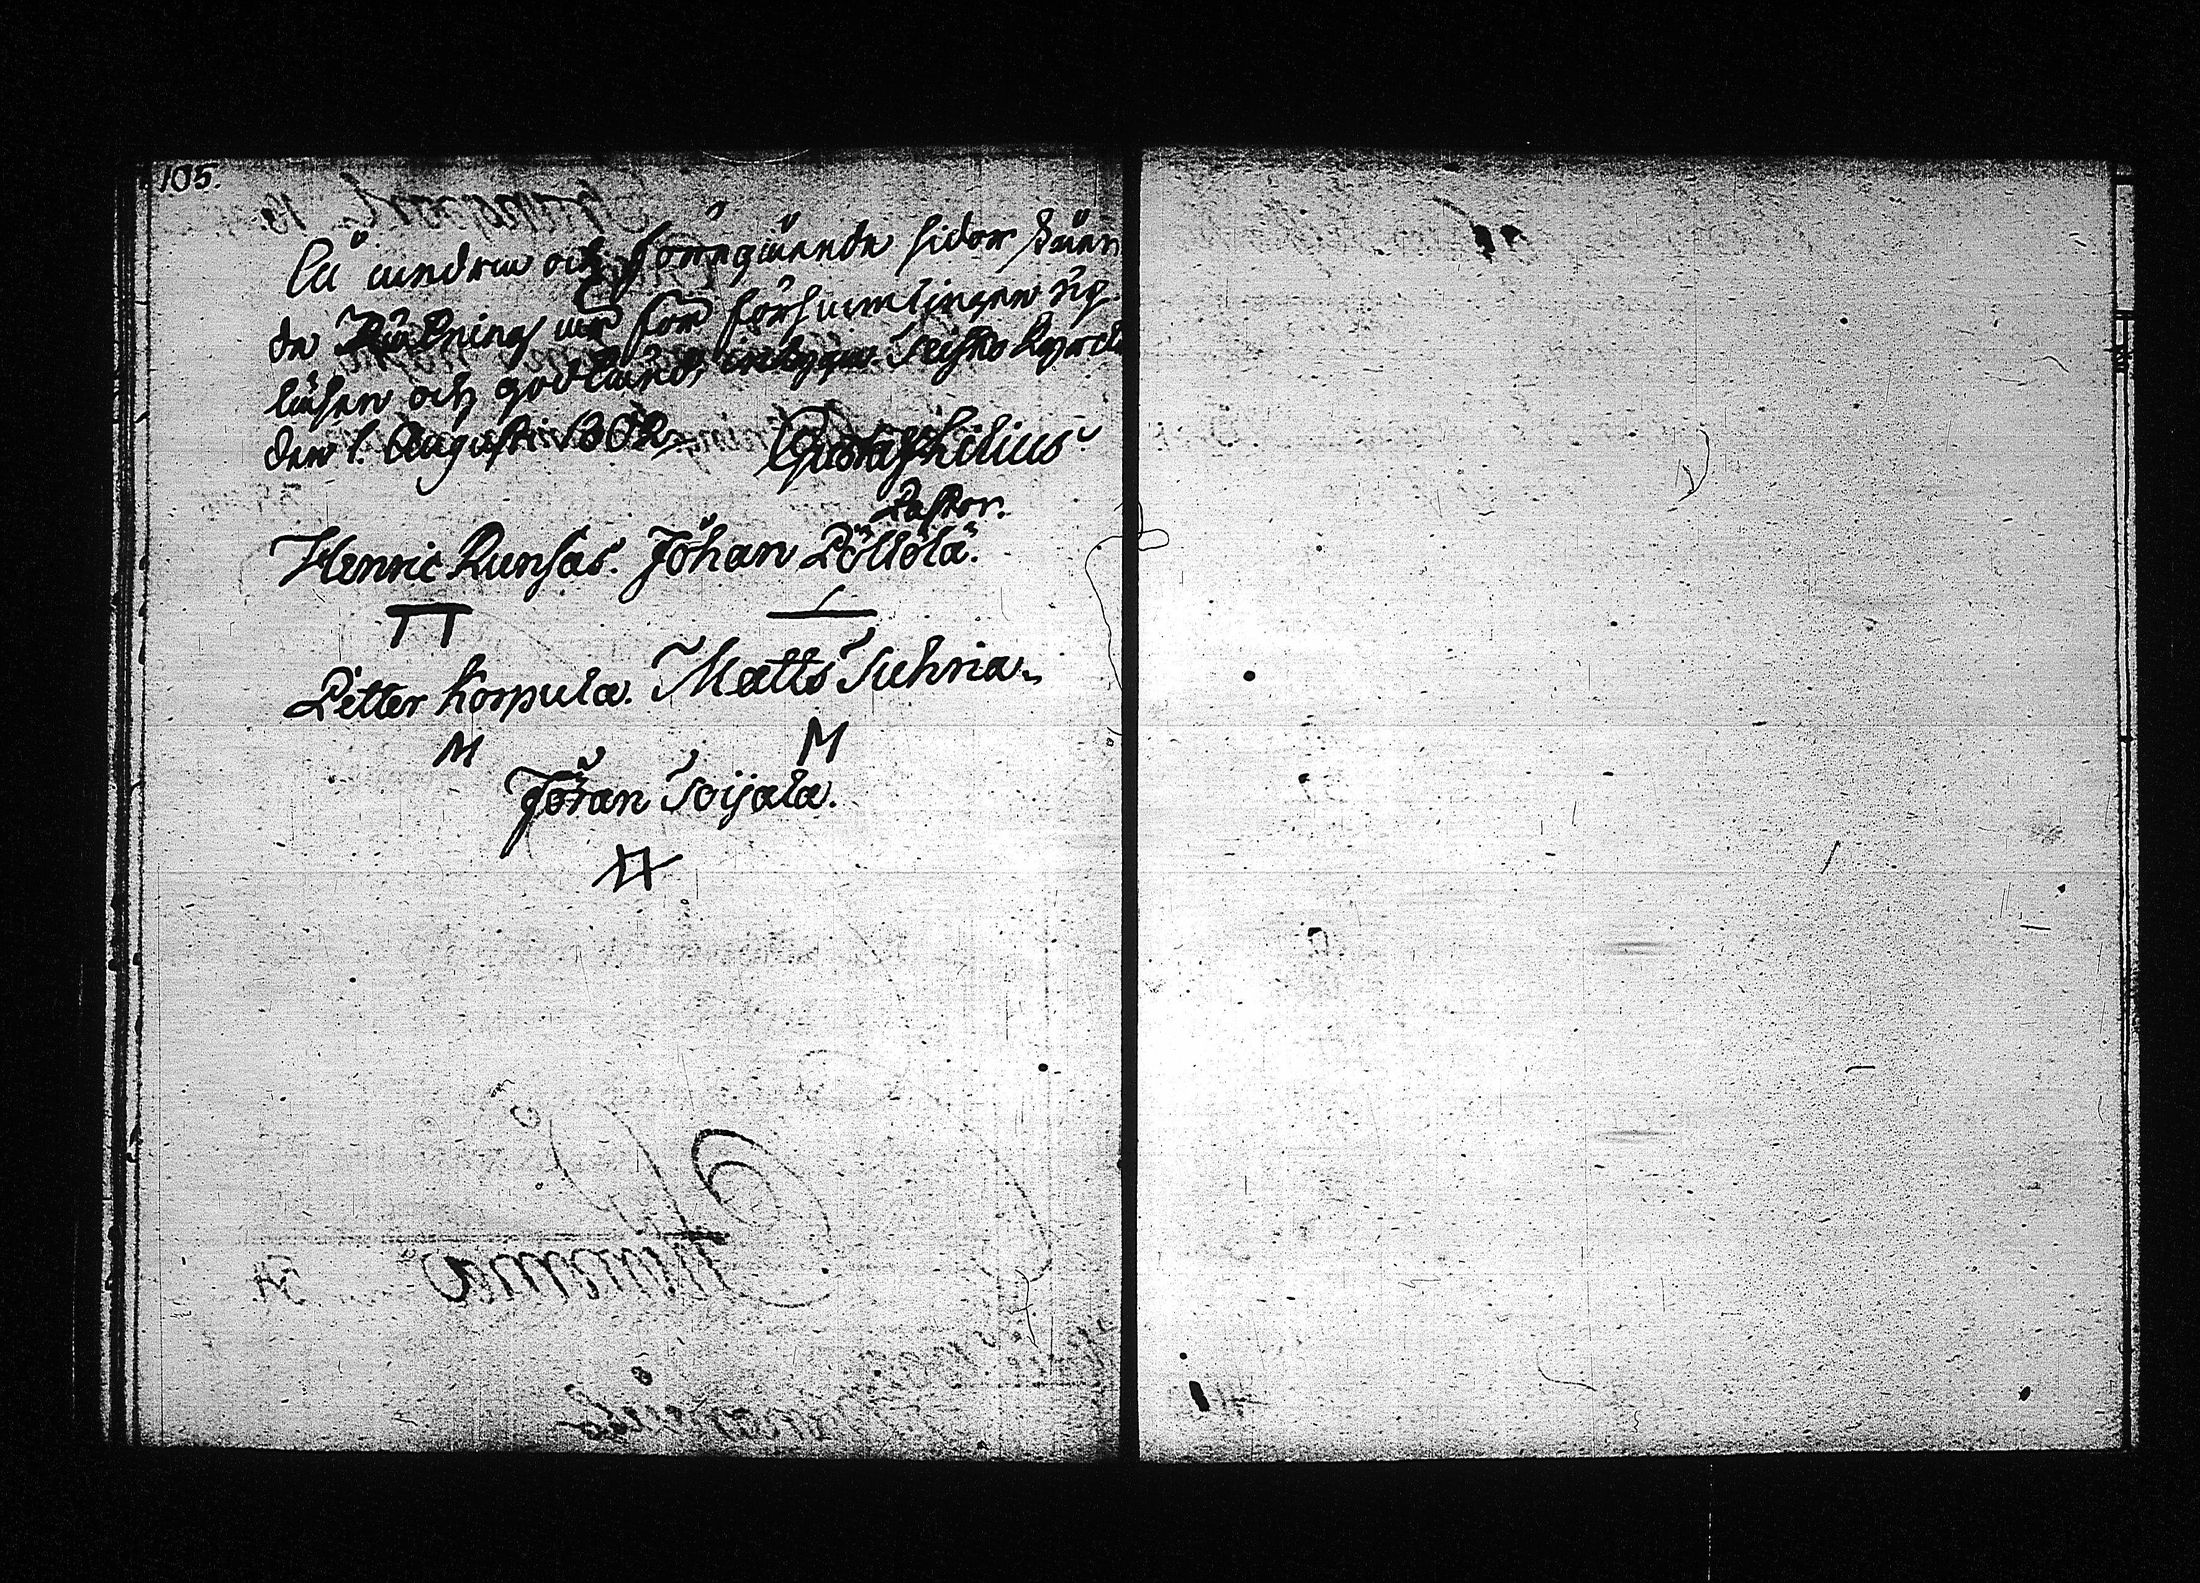 105.
På andra och föregående sidor ståen
de Räkning är for församlingen up
läsen och godkänd,
den 1. Augusti 1802 Gustaf Lilius
Pastor.
Henric Runsas. Johan Pöllölä.
Petter Korpula. Matts Suhria.
M M
Jöran Soijala.